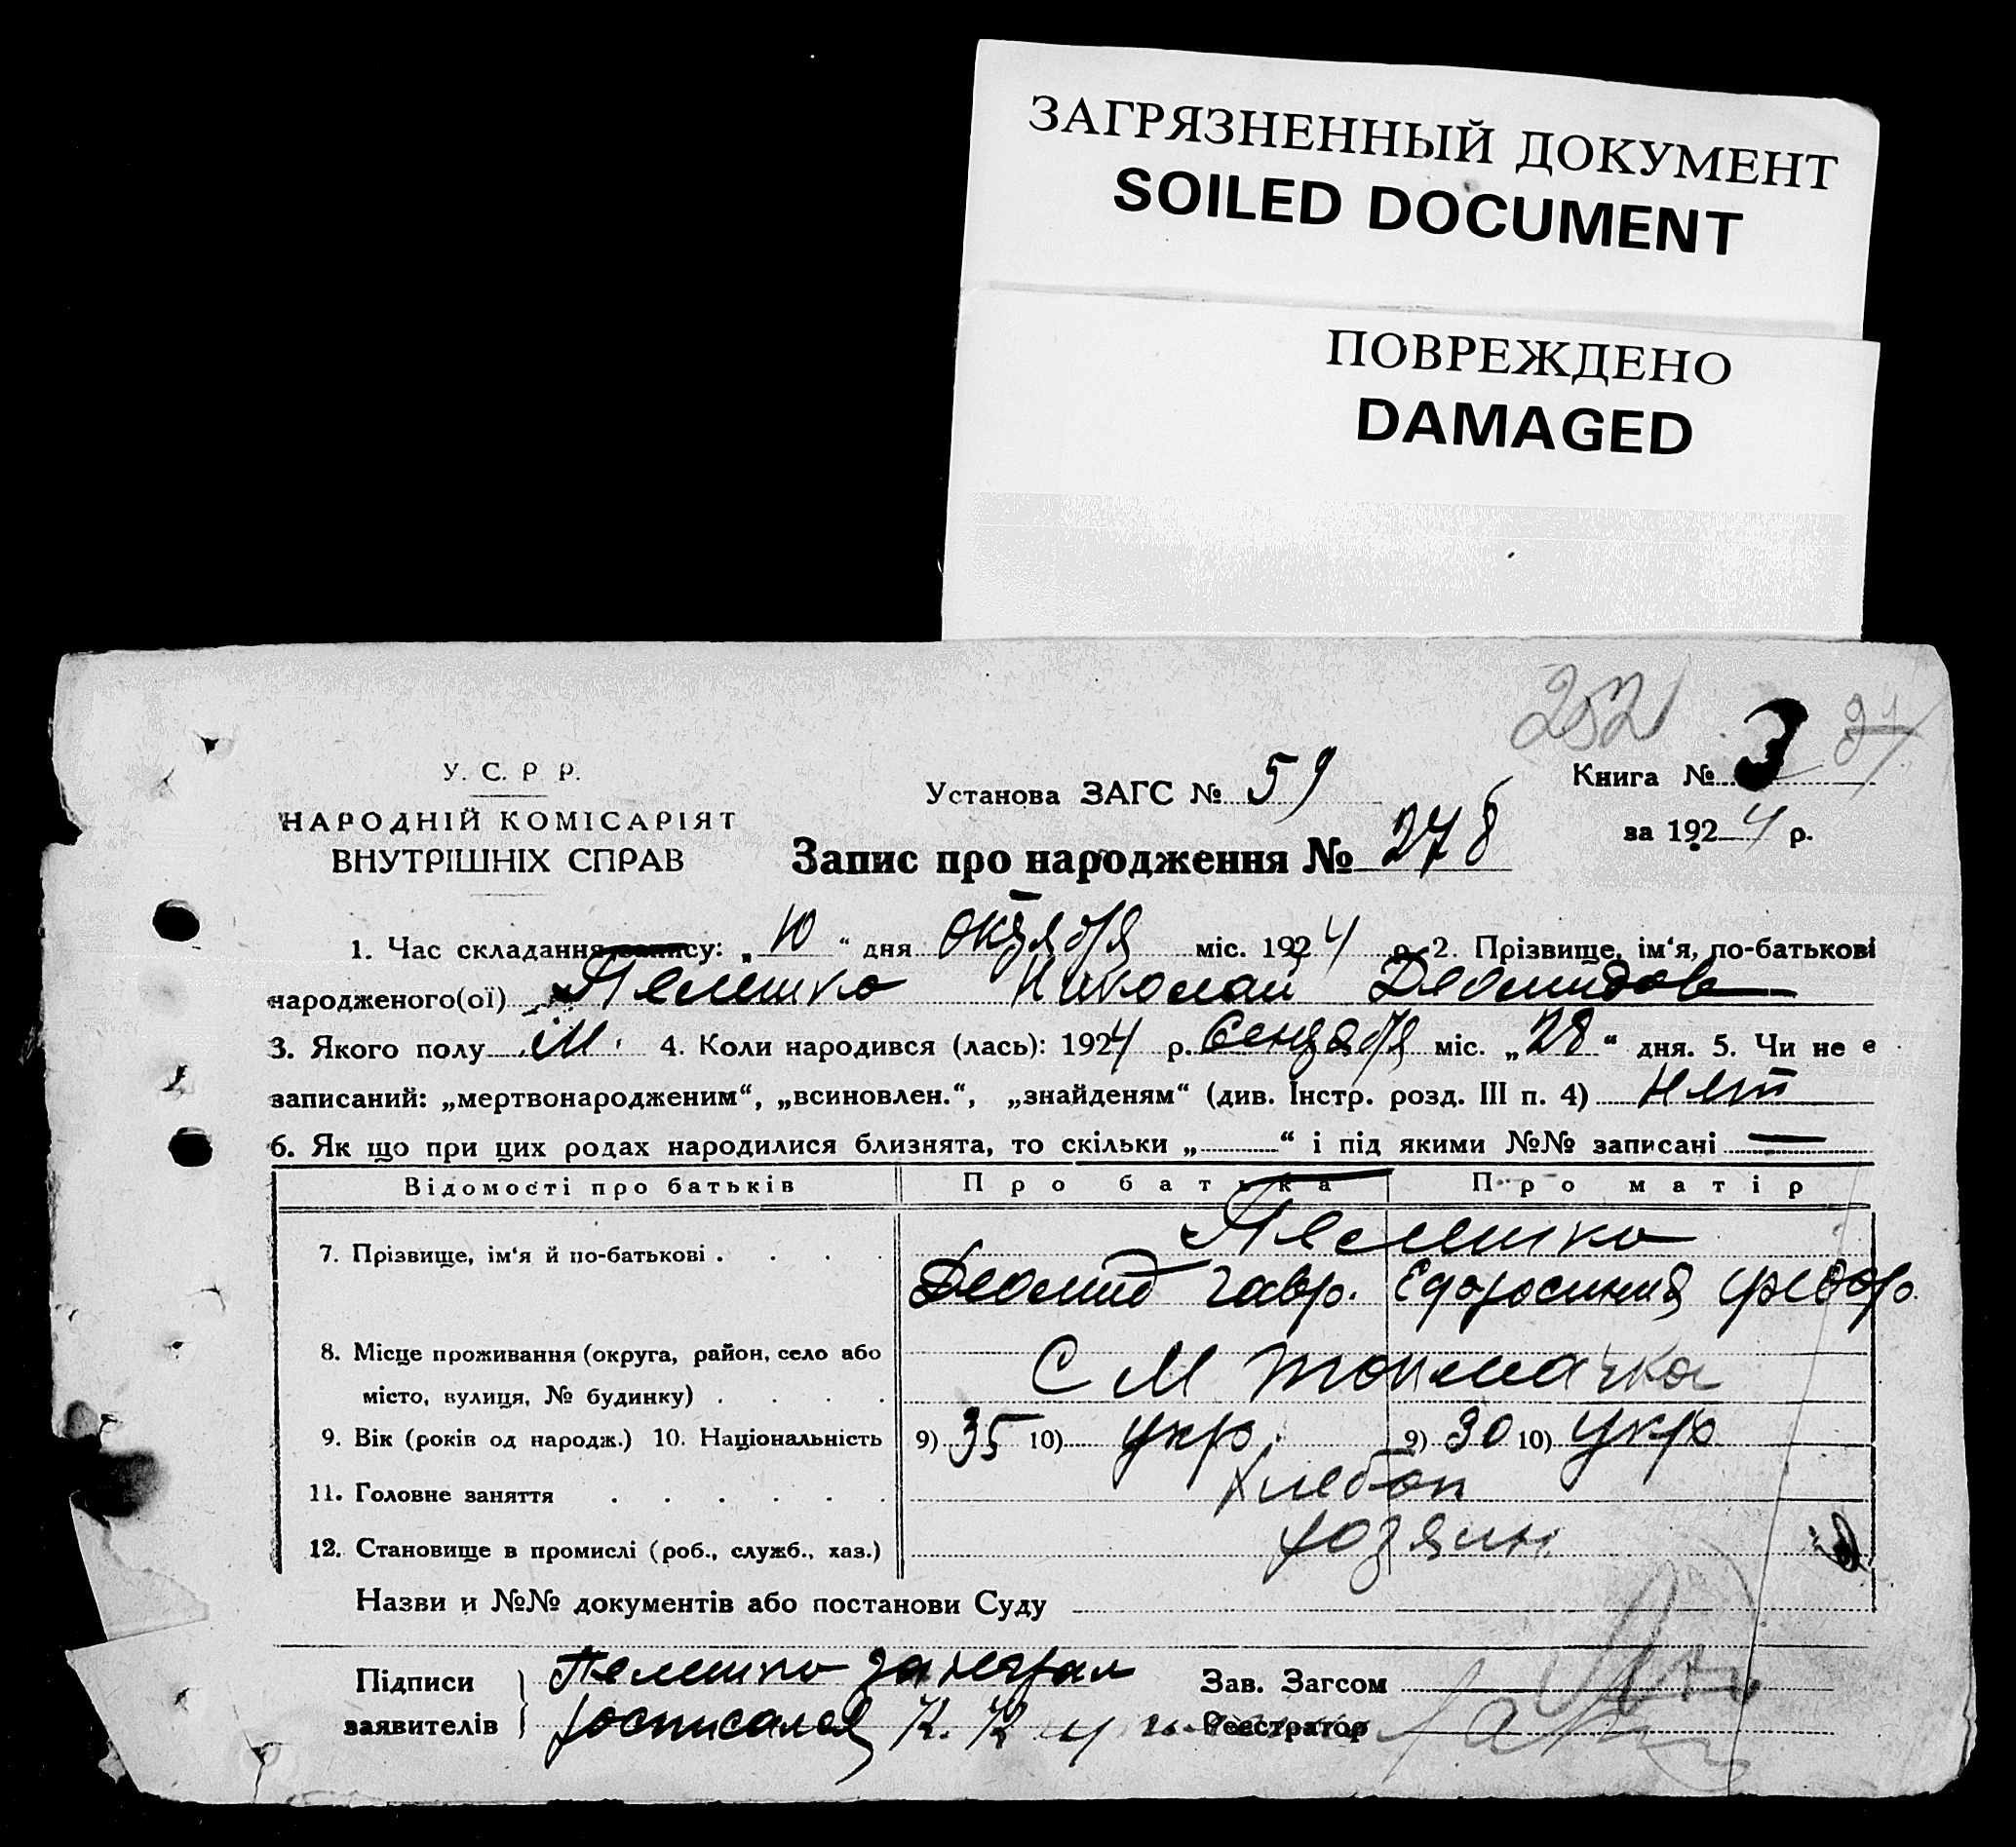 ЗАГРЯЗНЕННЫЙ ДОКУМЕНТ
SOILED DOCUMENT
ПОВРЕЖДЕНО
DAMAGED
252
У. С. Р Р.
НАРОДНІЙ КОМІСАРІЯТ
ВНУТРІШНІХ СПРАВ
Установа ЗАГС № 59
Книга № 3
за 1924 р.
Запис про народження № 278
1. Час складання запису: „10“ дня октября міс. 1924 р. 2. Прізвище, ім‘я, по-батькові
народженого(ої) Пелешко Николай Деомидов
3. Якого полу М. 4. Коли народився (лась): 1924 р. Сентября міс. „28“ дня. 5. Чи не є
записаний: „мертвонародженим“, „всиновлен.“, „знайденям“ (див. Інстр. розд. III п. 4) нет
6. Як що при цих родах народилися близнята, то скільки „......“ і під якими №№ записані —
Відомості про батьків Про батька Про матір
7. Прізвище, ім‘я й по-батькові . . . . Пелешко
Деомид Гавр. Ефросиния Федор.
8. Місце проживання (округа, район, село або
місто, вулиця, № будинку) . . . . С М Токмачка
9. Вік (років од народж.) 10. Національність 9) 35 10) укр. 9) 30 10) укр
11. Головне заняття . . . . . . Хлебоп
12. Становище в промислі (роб., служб., хаз.) хозяин
Назви и №№ документів або постанови Суду
Підписи заявителів Пелешко за неграм
росписался К. К
Зав. Загсом
Реєстратор